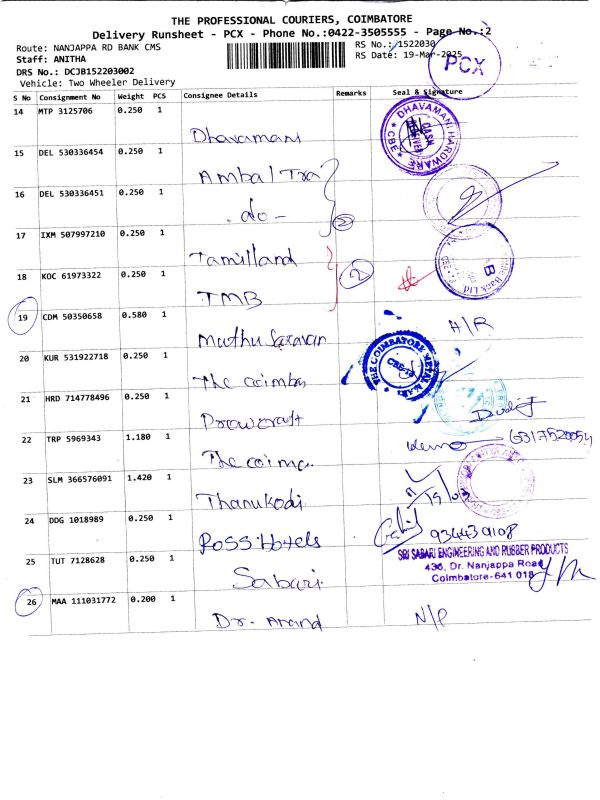 THE PROFESSIONAL COURIERS, COIMBATORE
Delivery Runsheet - PCX - Phone No.:0422-3505555 - Page No.:2
Route: NANJAPPA RD BANK CMS
RS No.: 1522030
Staff: ANITHA
RS Date: 19-Mar-2025
PCX
DRS No.: DCJB152203002
Vehicle: Two Wheeler Delivery
S No Consignment No Weight PCS Consignee Details Remarks Seal & Signature
14 MTP 3125706 0.250 1
Dhavamani
DHAVAMANI HARDWARE
CBE
CASH
15 DEL 530336454 0.250 1
Ambal Tra
16 DEL 530336451 0.250 1
- do -
2
17 IXM 507997210 0.250 1
Tamilland
18 KOC 61973322 0.250 1
TMB
2
Bank Ltd
19 CDM 50350658 0.580 1
Muthu Saravan
A/R
20 KUR 531922718 0.250 1
The Coimba
THE COIMBATORE METAL MART
CBE-18
21 HRD 714778496 0.250 1
Drawcraft
22 TRP 5969343 1.180 1
The coima..
23 SLM 366576091 1.420 1
Thanukodi
24 DDG 1018989 0.250 1
Ross Hotels
934439108
25 TUT 7128628 0.250 1
Sabari
SRI SABARI ENGINEERING AND RUBBER PRODUCTS
436, Dr. Nanjappa Road,
Coimbatore-641 018
26 MAA 111031772 0.200 1
Dr. Anand
N/P